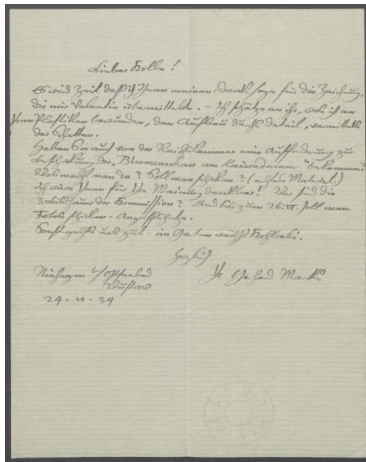 Lieber Kolbe!
Es wird Zeit daß ich Ihnen meinen Dank sage für die Zeichnung,
die mir Valentin übermittelte. – Ich schätze an ihr, was ich an
Ihren Plastiken bewundere, den Aufbau durchs Detail, vermittels
der Schatten.
Haben Sie auch von der Reichskammer eine Aufforderung zur
Beschickung der "Blumen am" bekommen?
Was macht man da? Soll man schicken? (echtes Material)
Ich wäre Ihnen für Ihre Meinung dankbar! Wer sind die
der Kommission? Und bis zum 26. soll man
Fotos schicken –
Sonst gehts uns gut – im Garten wächst Kohlrabi.
Herzlich
Ihr Gerhard Marcks
Niehagen b/Ostseebad
Wustrow